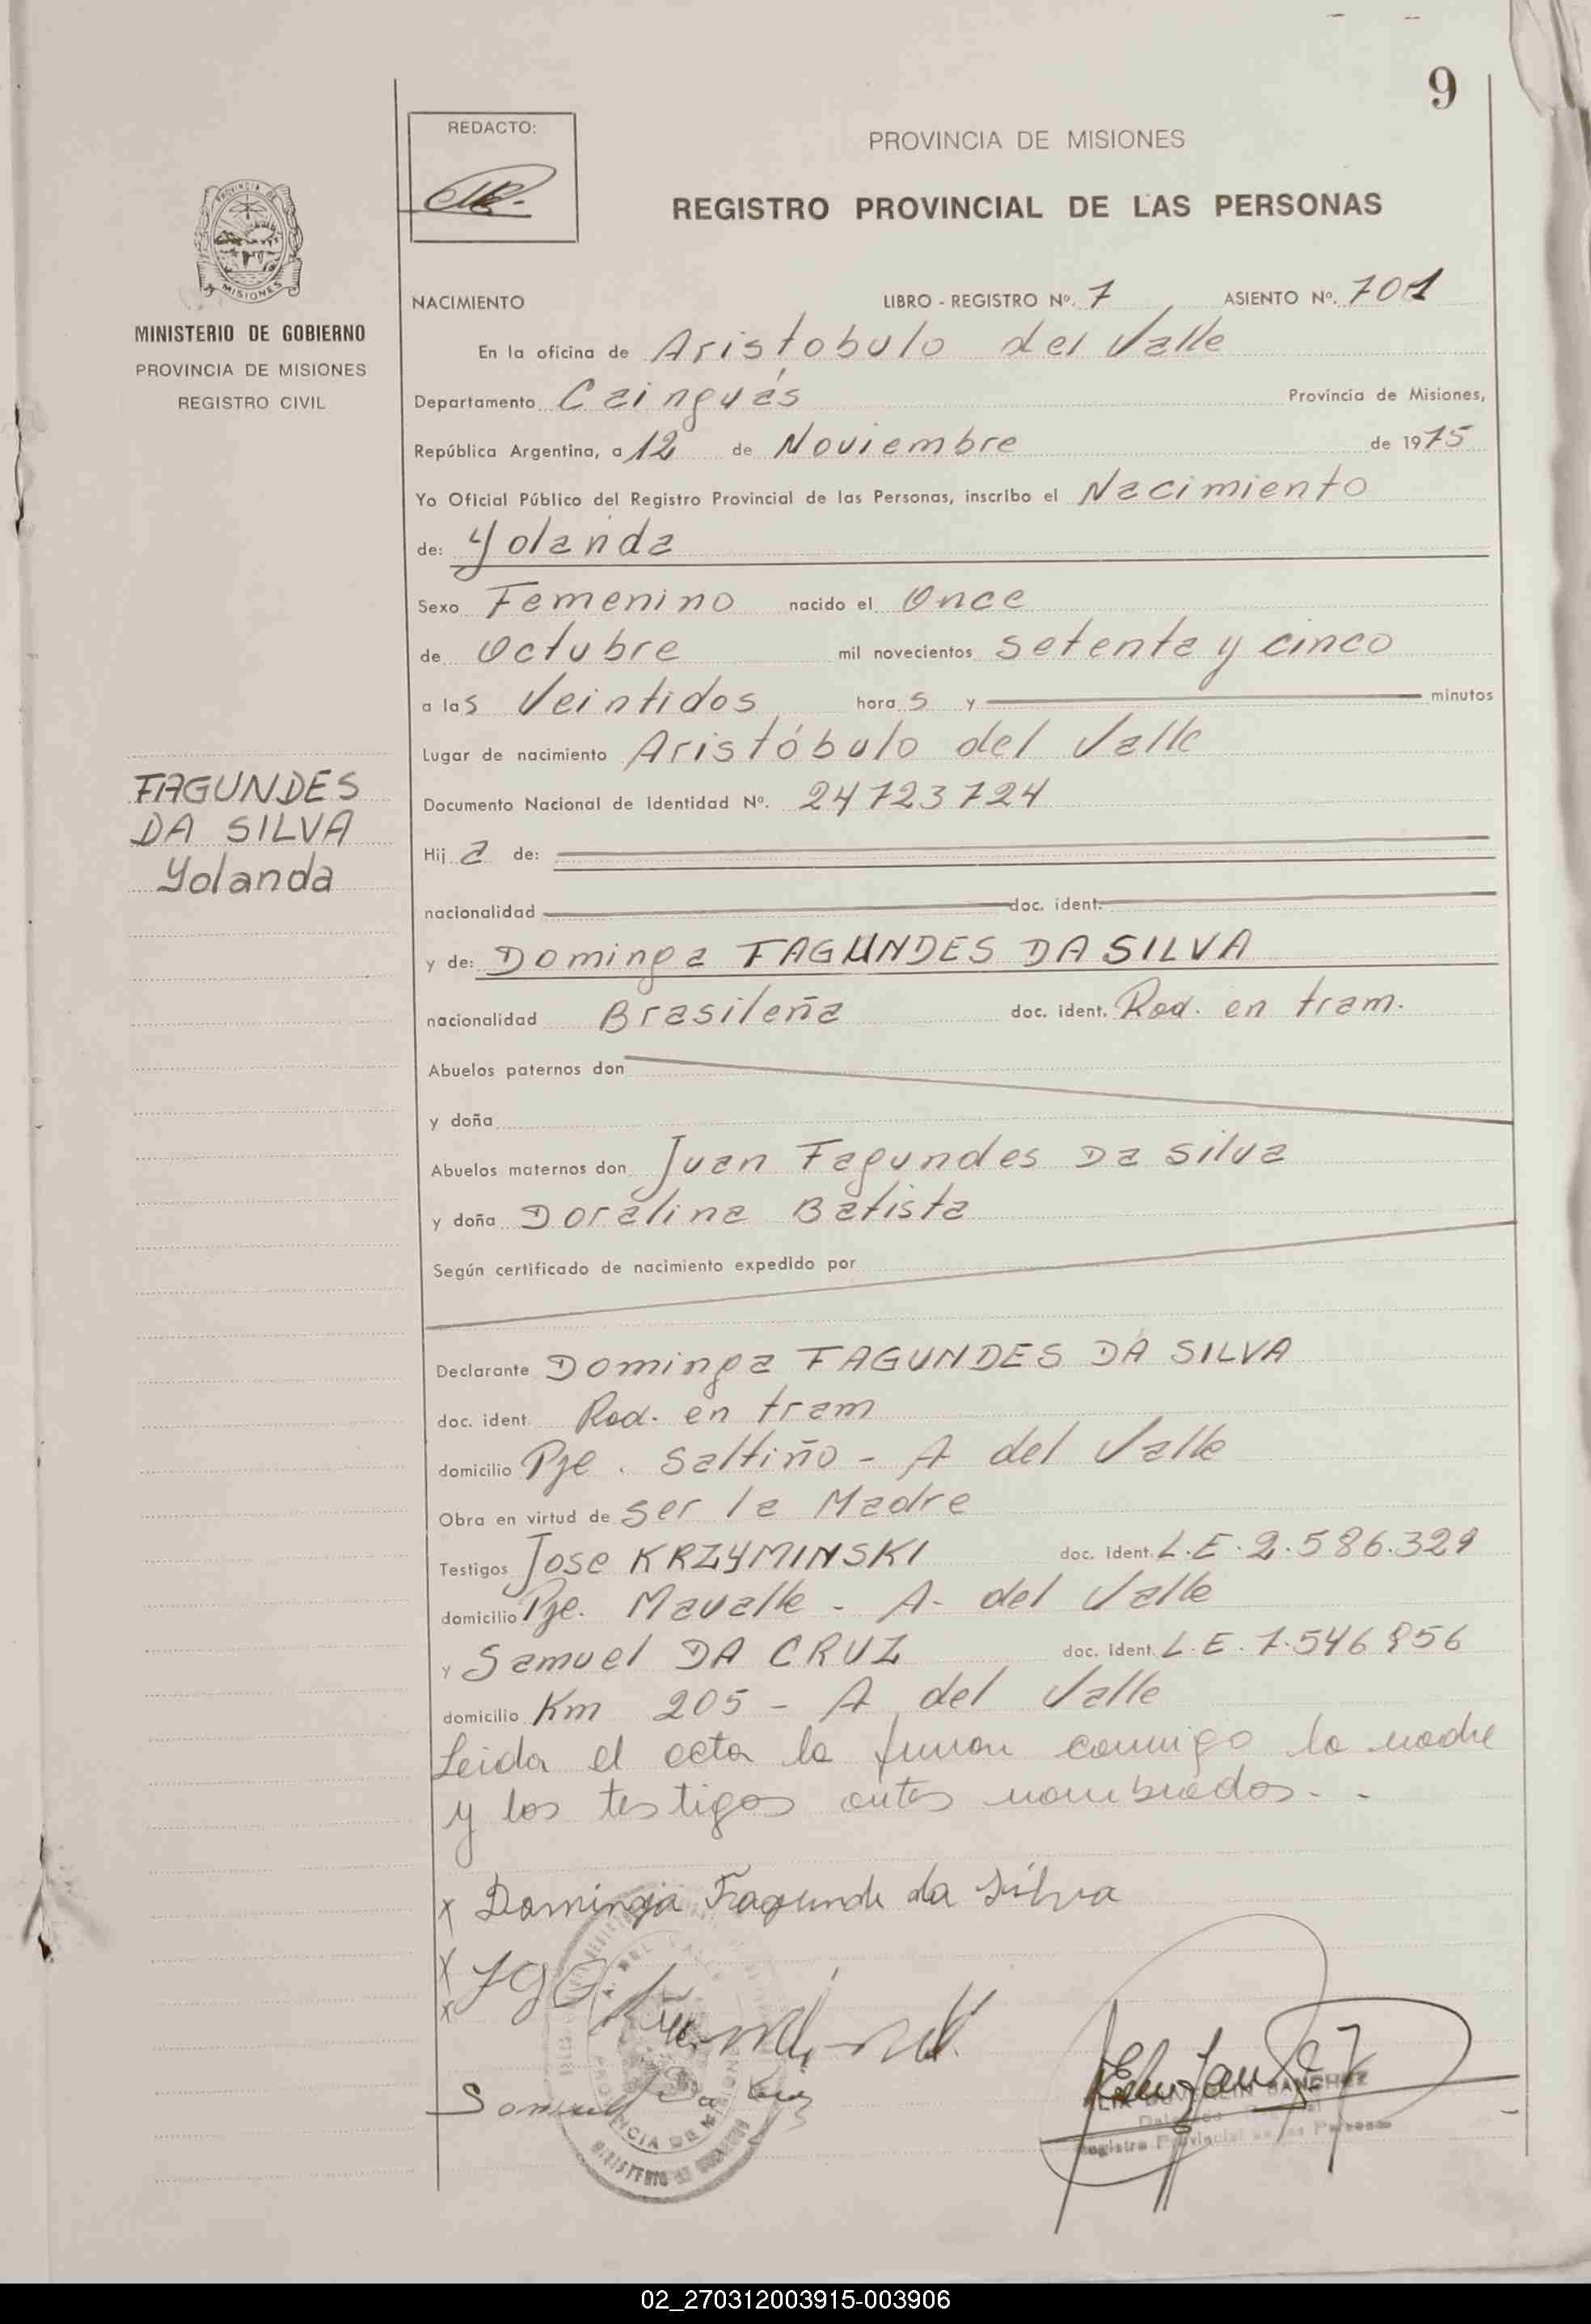 9
REDACTO:
PROVINCIA DE MISIONES
REGISTRO PROVINCIAL DE LAS PERSONAS
PROVINCIA DE
MISIONES
MINISTERIO DE GOBIERNO
PROVINCIA DE MISIONES
REGISTRO CIVIL
NACIMIENTO LIBRO - REGISTRO Nº. 7 ASIENTO Nº. 701
En la oficina de Aristobulo del Valle
Departamento Cainguás Provincia de Misiones,
República Argentina, a 12 de Noviembre de 1975
Yo Oficial Público del Registro Provincial de las Personas, inscribo el Nacimiento
de: Yolanda
Sexo Femenino nacido el Once
de Octubre mil novecientos setenta y cinco
a las Veintidos horas y minutos
Lugar de nacimiento Aristóbulo del Valle
FAGUNDES
DA SILVA
Yolanda
Documento Nacional de Identidad Nº. 24723724
Hija de:
nacionalidad doc. ident.
y de: Dominga FAGUNDES DA SILVA
nacionalidad Brasileña doc. ident. Rad. en tram.
Abuelos paternos don
y doña
Abuelos maternos don Juan Fagundes Da Silva
y doña Doralina Batista
Según certificado de nacimiento expedido por
Declarante Dominga FAGUNDES DA SILVA
doc. ident. Rad. en tram
domicilio Pje. Saltiño - A del Valle
Obra en virtud de ser la Madre
Testigos Jose KRZYMINSKI doc. ident. L.E. 2.586.329
domicilio Pje. Mavalle - A. del Valle
y Samuel DA CRUZ doc. ident. L.E. 7.546856
domicilio Km 205 - A del Valle
Leida el acta la firman conmigo la madre
y los testigos antes nombrados. -
x Dominga Fagunde da Silva
x
x
Samuel Da Cruz
SANCHEZ
Registro Provincial de las Personas
PROVINCIA DE MISIONES
MINISTERIO DE GOBIERNO
02_270312003915-003906